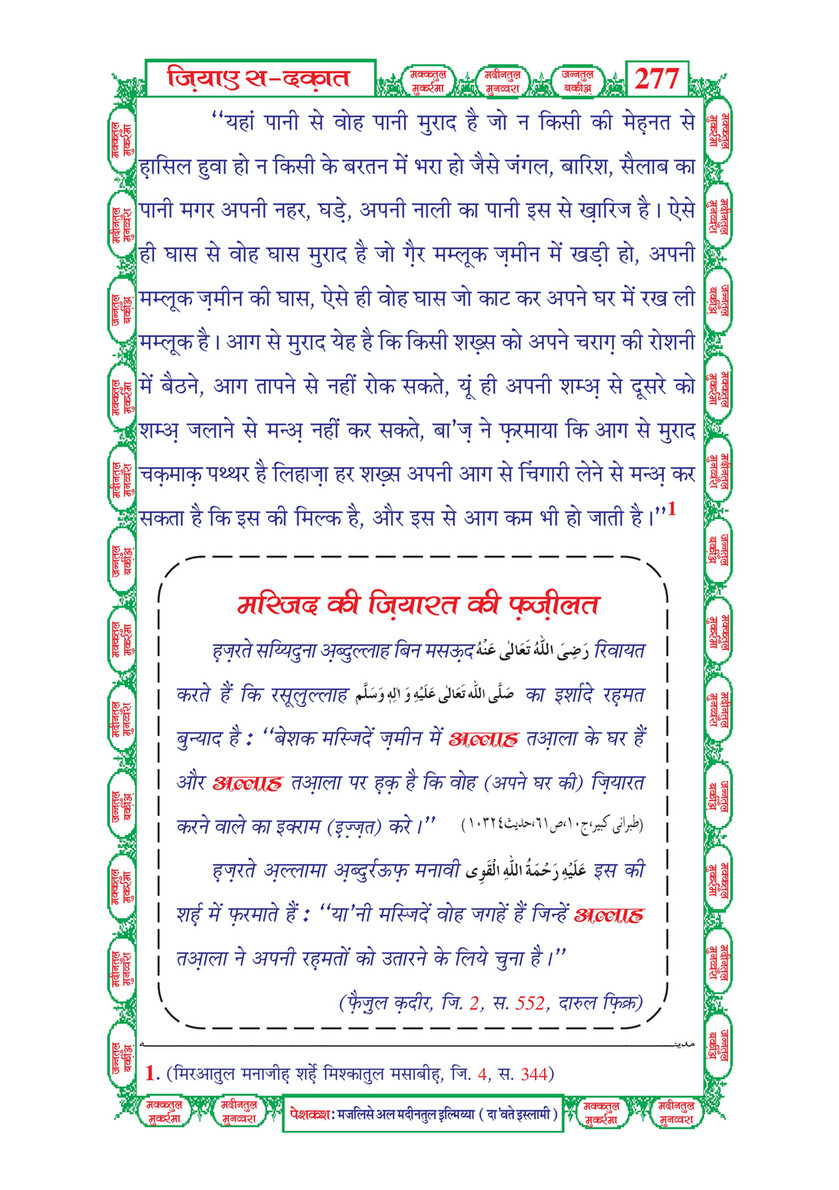 ज़ियाए स-दक़ात
मक्कतुल मुकर्रमा
मदीनतुल मुनव्वरा
जन्नतुल बक़ीअ़
277
‘‘यहां पानी से वोह पानी मुराद है जो न किसी की मेह़नत से
ह़ासिल हुवा हो न किसी के बरतन में भरा हो जैसे जंगल, बारिश, सैलाब का
पानी मगर अपनी नहर, घड़े, अपनी नाली का पानी इस से ख़ारिज है। ऐसे
ही घास से वोह घास मुराद है जो ग़ैर मम्लूक ज़मीन में खड़ी हो, अपनी
मम्लूक ज़मीन की घास, ऐसे ही वोह घास जो काट कर अपने घर में रख ली
मम्लूक है। आग से मुराद येह है कि किसी शख़्स को अपने चराग़ की रोशनी
में बैठने, आग तापने से नहीं रोक सकते, यूं ही अपनी शम्अ़ से दूसरे को
शम्अ़ जलाने से मन्अ़ नहीं कर सकते, बा'ज़ ने फ़रमाया कि आग से मुराद
चक़माक़ पथ्थर है लिहाज़ा हर शख़्स अपनी आग से चिंगारी लेने से मन्अ़ कर
सकता है कि इस की मिल्क है, और इस से आग कम भी हो जाती है।’’1
मस्जिद की ज़ियारत की फ़ज़ीलत
ह़ज़रते सय्यिदुना अ़ब्दुल्लाह बिन मसऊ़द رَضِىَ اللّٰهُ تَعَالٰى عَنْهُ रिवायत
करते हैं कि रसूलुल्लाह صَلَّى اللّٰهُ تَعَالٰى عَلَيْهِ وَ اٰلِهٖ وَسَلَّم का इर्शादे रह़मत
बुन्याद है : ‘‘बेशक मस्जिदें ज़मीन में अल्लाह तआ़ला के घर हैं
और अल्लाह तआ़ला पर ह़क़ है कि वोह (अपने घर की) ज़ियारत
करने वाले का इक्राम (इ़ज़्ज़त) करे।’’ (طبرانی کبیر،ج١٠،ص٦١،حدیث١٠٣٢٤)
ह़ज़रते अ़ल्लामा अ़ब्दुर्रऊफ़ मनावी عَلَيْهِ رَحْمَةُ اللّٰهِ الْقَوِى इस की
शर्ह़ में फ़रमाते हैं : ‘‘या'नी मस्जिदें वोह जगहें हैं जिन्हें अल्लाह
तआ़ला ने अपनी रह़मतों को उतारने के लिये चुना है।’’
(फ़ैज़ुल क़दीर, जि. 2, स. 552, दारुल फ़िक्र)
مدینہ
1. (मिरआतुल मनाजीह़ शर्ह़े मिश्कातुल मसाबीह़, जि. 4, स. 344)
मक्कतुल मुकर्रमा
मदीनतुल मुनव्वरा
पेशकश : मजलिसे अल मदीनतुल इ़ल्मिय्या ( दा'वते इस्लामी )
मक्कतुल मुकर्रमा
मदीनतुल मुनव्वरा